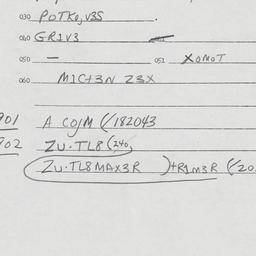 030 POTKO,V3S
040 GR1V3
050 — 051 XOMOT
060 M1C+3N Z3X
901 A COJM (/182043
902 ZU·TL8 (240)
(ZU·TL8MAX3R )+R1M3R (/20